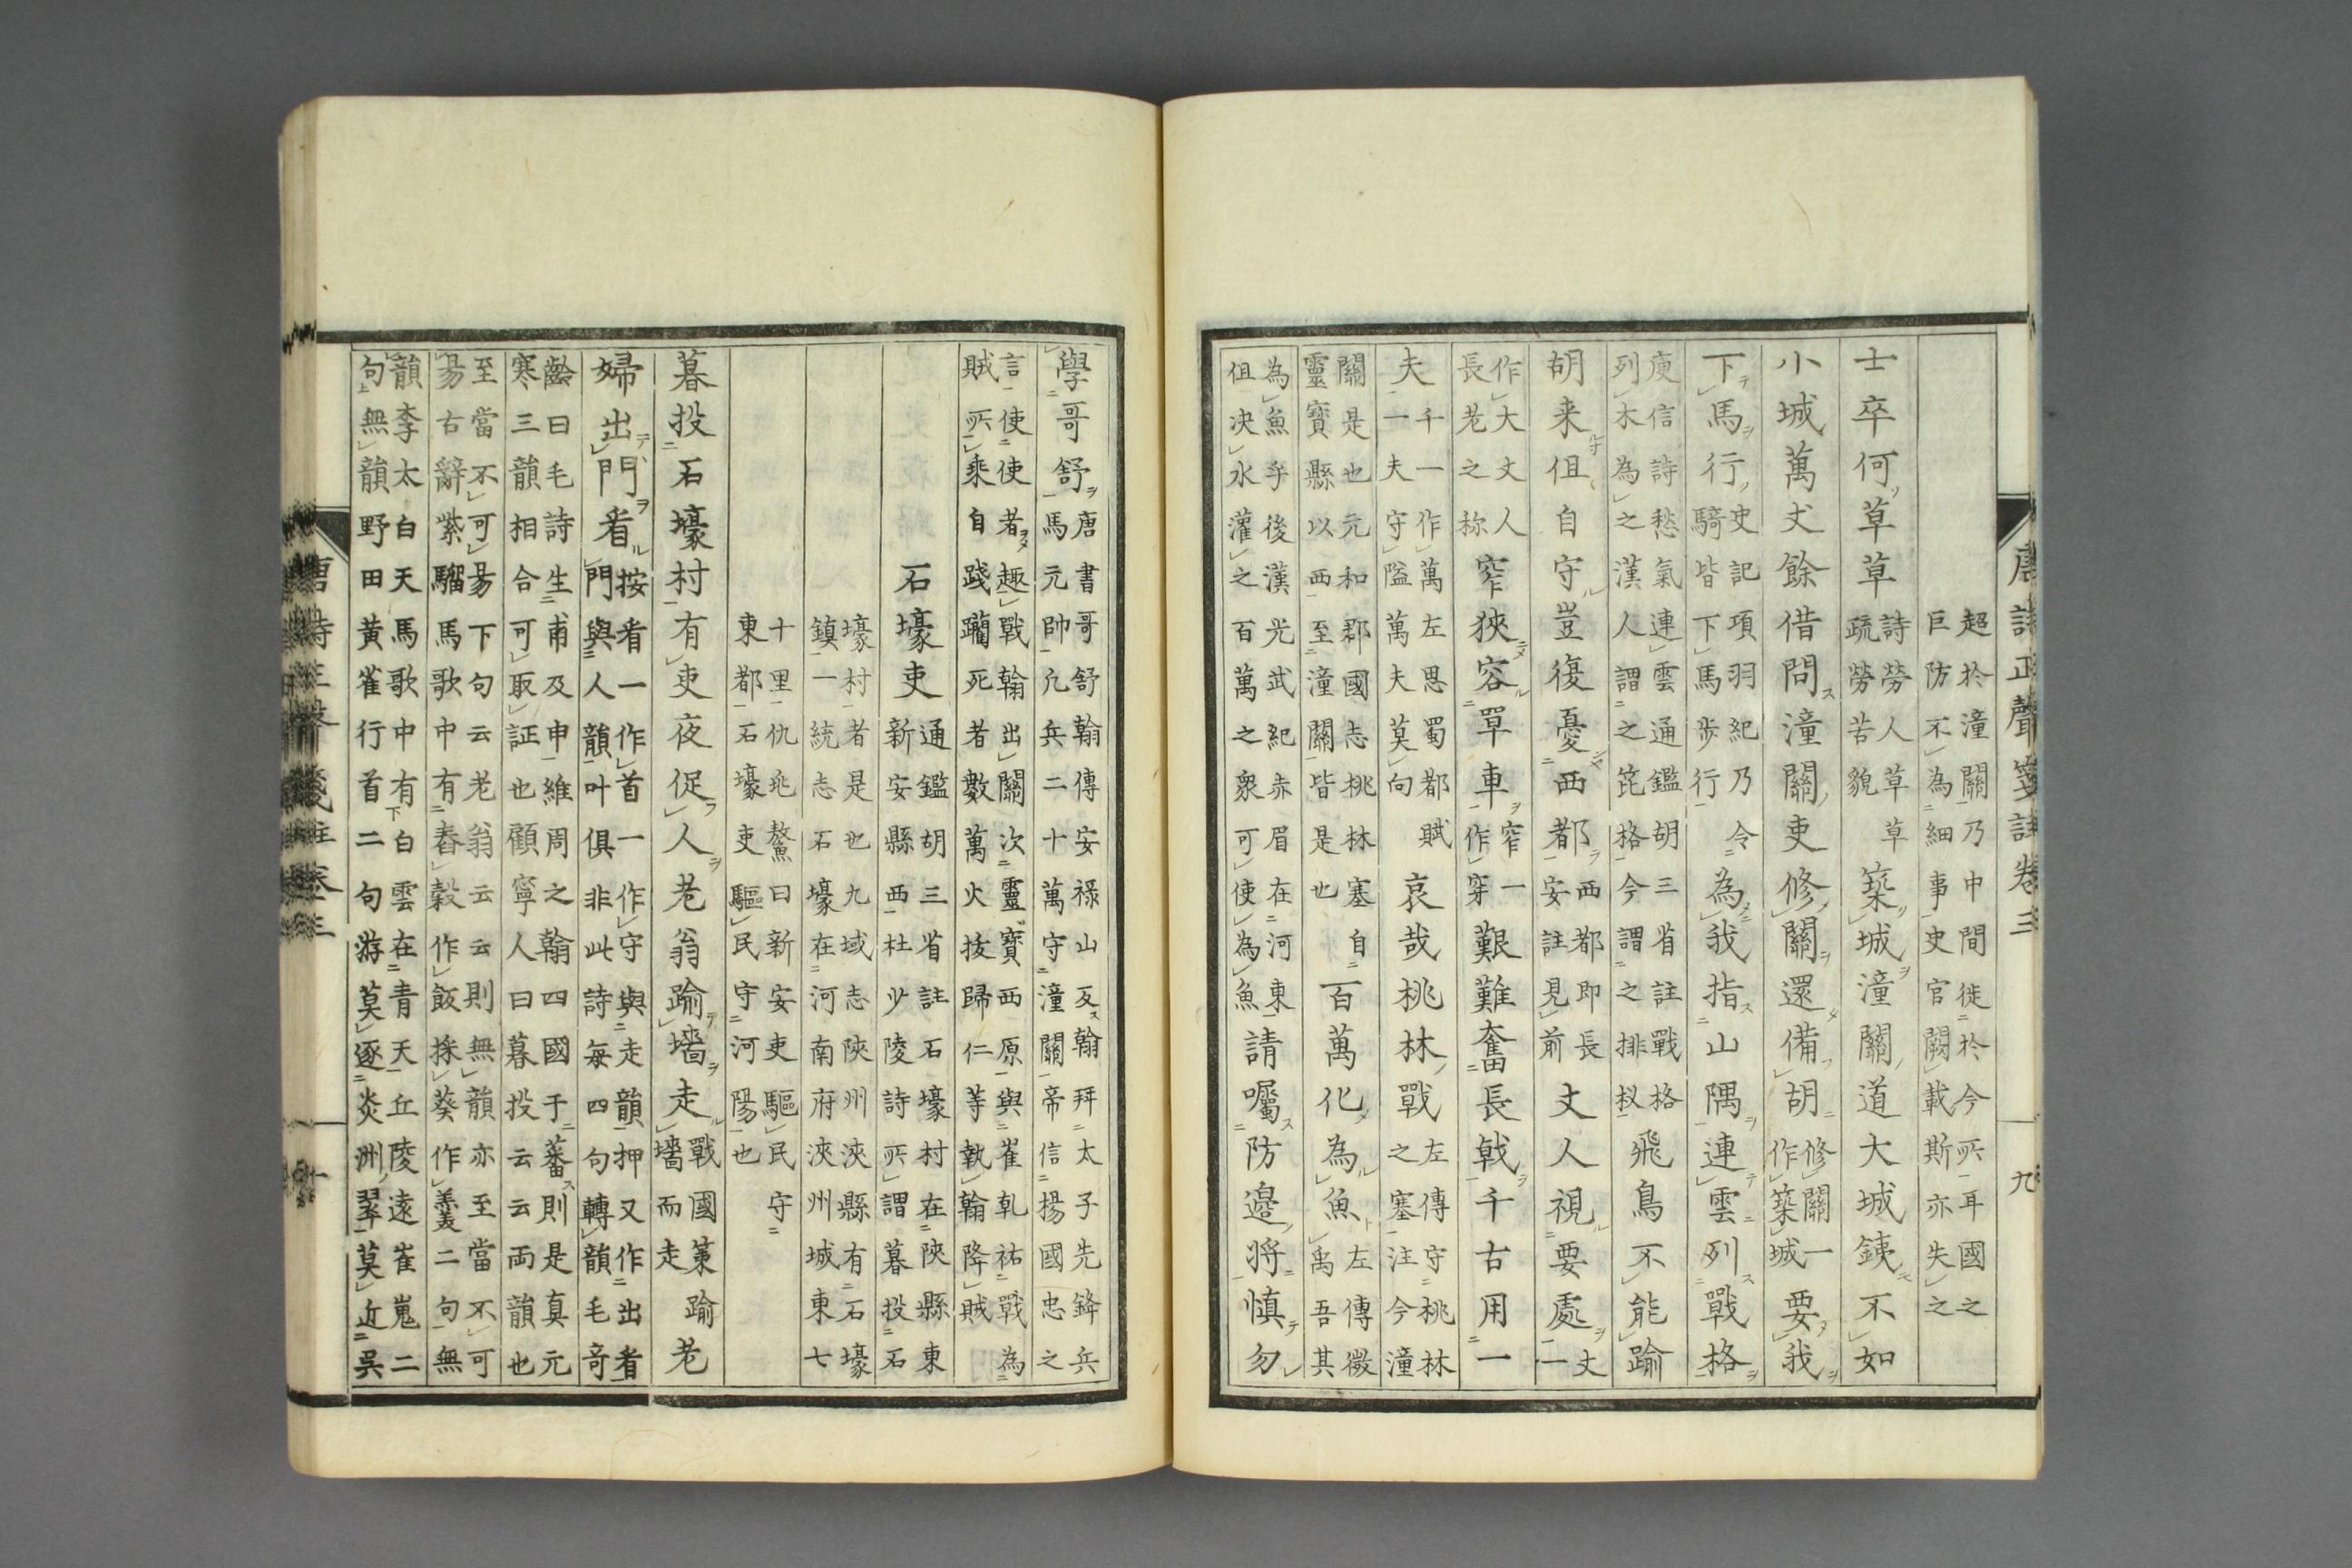 唐詩正聲箋註卷三 九
超於潼關乃中間徙於今所耳國之巨防不為細事史官闕載斯亦失之
士卒何草草詩勞人草草疏勞苦貌築城潼關道大城鐵不如
小城萬丈餘借問潼關吏修關還備胡修關一作築城要我
下馬行史記項羽紀乃令騎皆下馬步行為我指山隅連雲列戰格
庾信詩愁氣連雲通鑑胡三省註戰格列木為之漢人謂之笓格今謂之排杈飛鳥不能踰
胡来但自守豈復憂西都西都即長安註見前丈人視要處丈一
作大丈人長老之称窄狹容單車窄一作穿艱難奮長戟千古用一
夫千一作萬左思蜀都賦一夫守隘萬夫莫向哀哉桃林戰左傳守桃林之塞注今潼
關是也元和郡國志桃林塞自靈寶縣以西至潼關皆是也百萬化為魚左傳微禹吾其
為魚乎後漢光武紀赤眉在河東但决水灌之百萬之衆可使為魚請囑防邊将慎勿
學哥舒唐書哥舒翰傳安禄山反翰拜太子先鋒兵馬元帥凢兵二十萬守潼關帝信楊國忠之
言使使者趣戰翰出關次靈寶西原與崔乾祐戰為賊所乘自踐躪死者數萬火拔歸仁等執翰降賊
石壕吏通鑑胡三省註石壕村在陝縣東新安縣西杜少陵詩所謂暮投石
壕村者是也九域志陝州陝縣有石壕鎮一統志石壕在河南府陝州城東七
十里仇兆鰲曰新安吏驅民守東都石壕吏驅民守河陽也
暮投石壕村有吏夜促人老翁踰墻走戰國策踰墻而走老
婦出門看按看一作首一作守與走韻押又作出看門與人韻叶俱非此詩每四句轉韻毛奇
齡曰毛詩生甫及申維周之翰四國于蕃則是真元寒三韻相合可取証也顧寧人曰暮投云云両韻也
至當不可易下句云老翁云云則無韻亦至當不可易古辭紫騮馬歌中有舂穀作飯採葵作羹二句無
韻李太白天馬歌中有白雲在青天丘陵遠崔嵬二句無韻野田黃雀行首二句游莫逐炎洲翠莫近吳